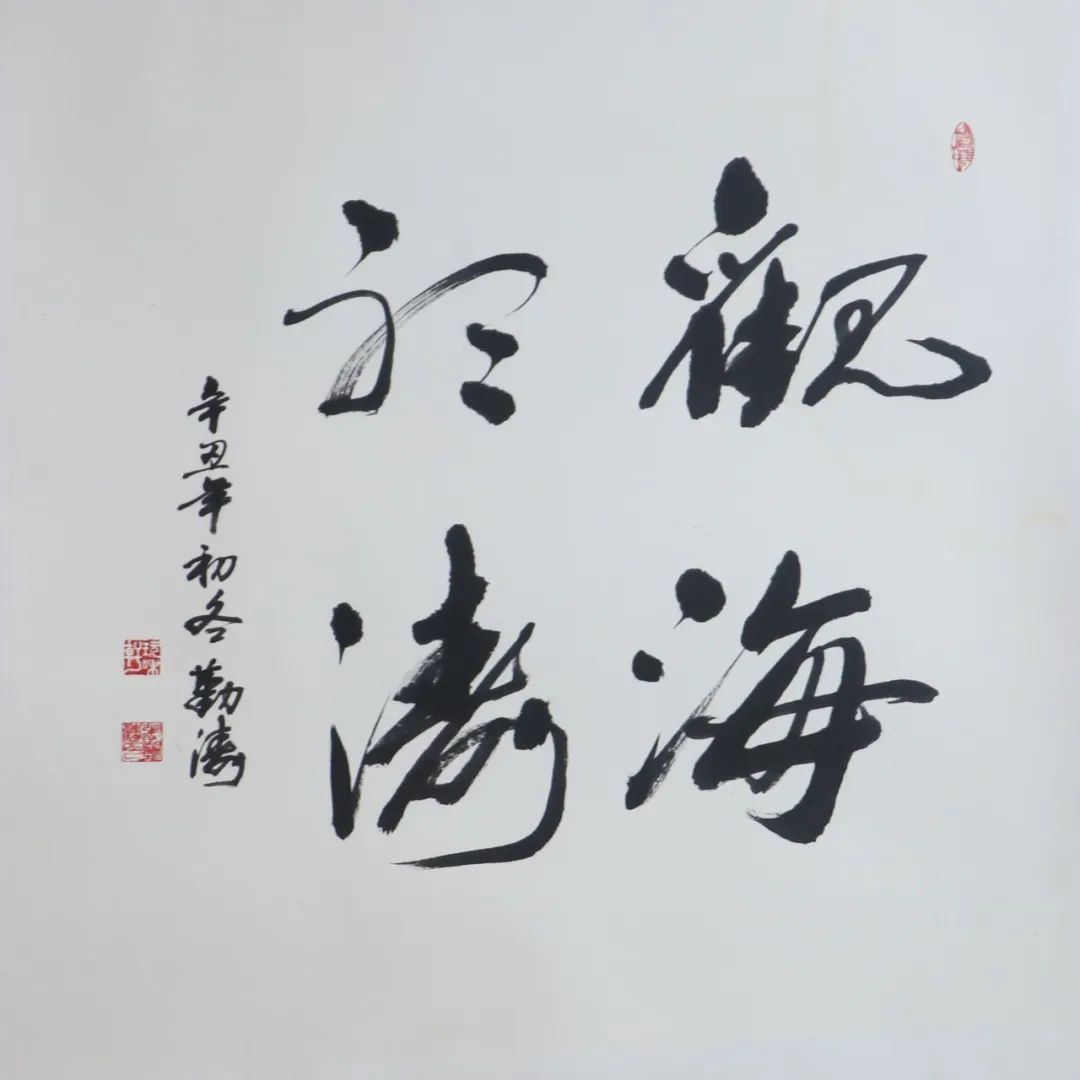 觀海
聽濤
辛丑年初冬勤濤